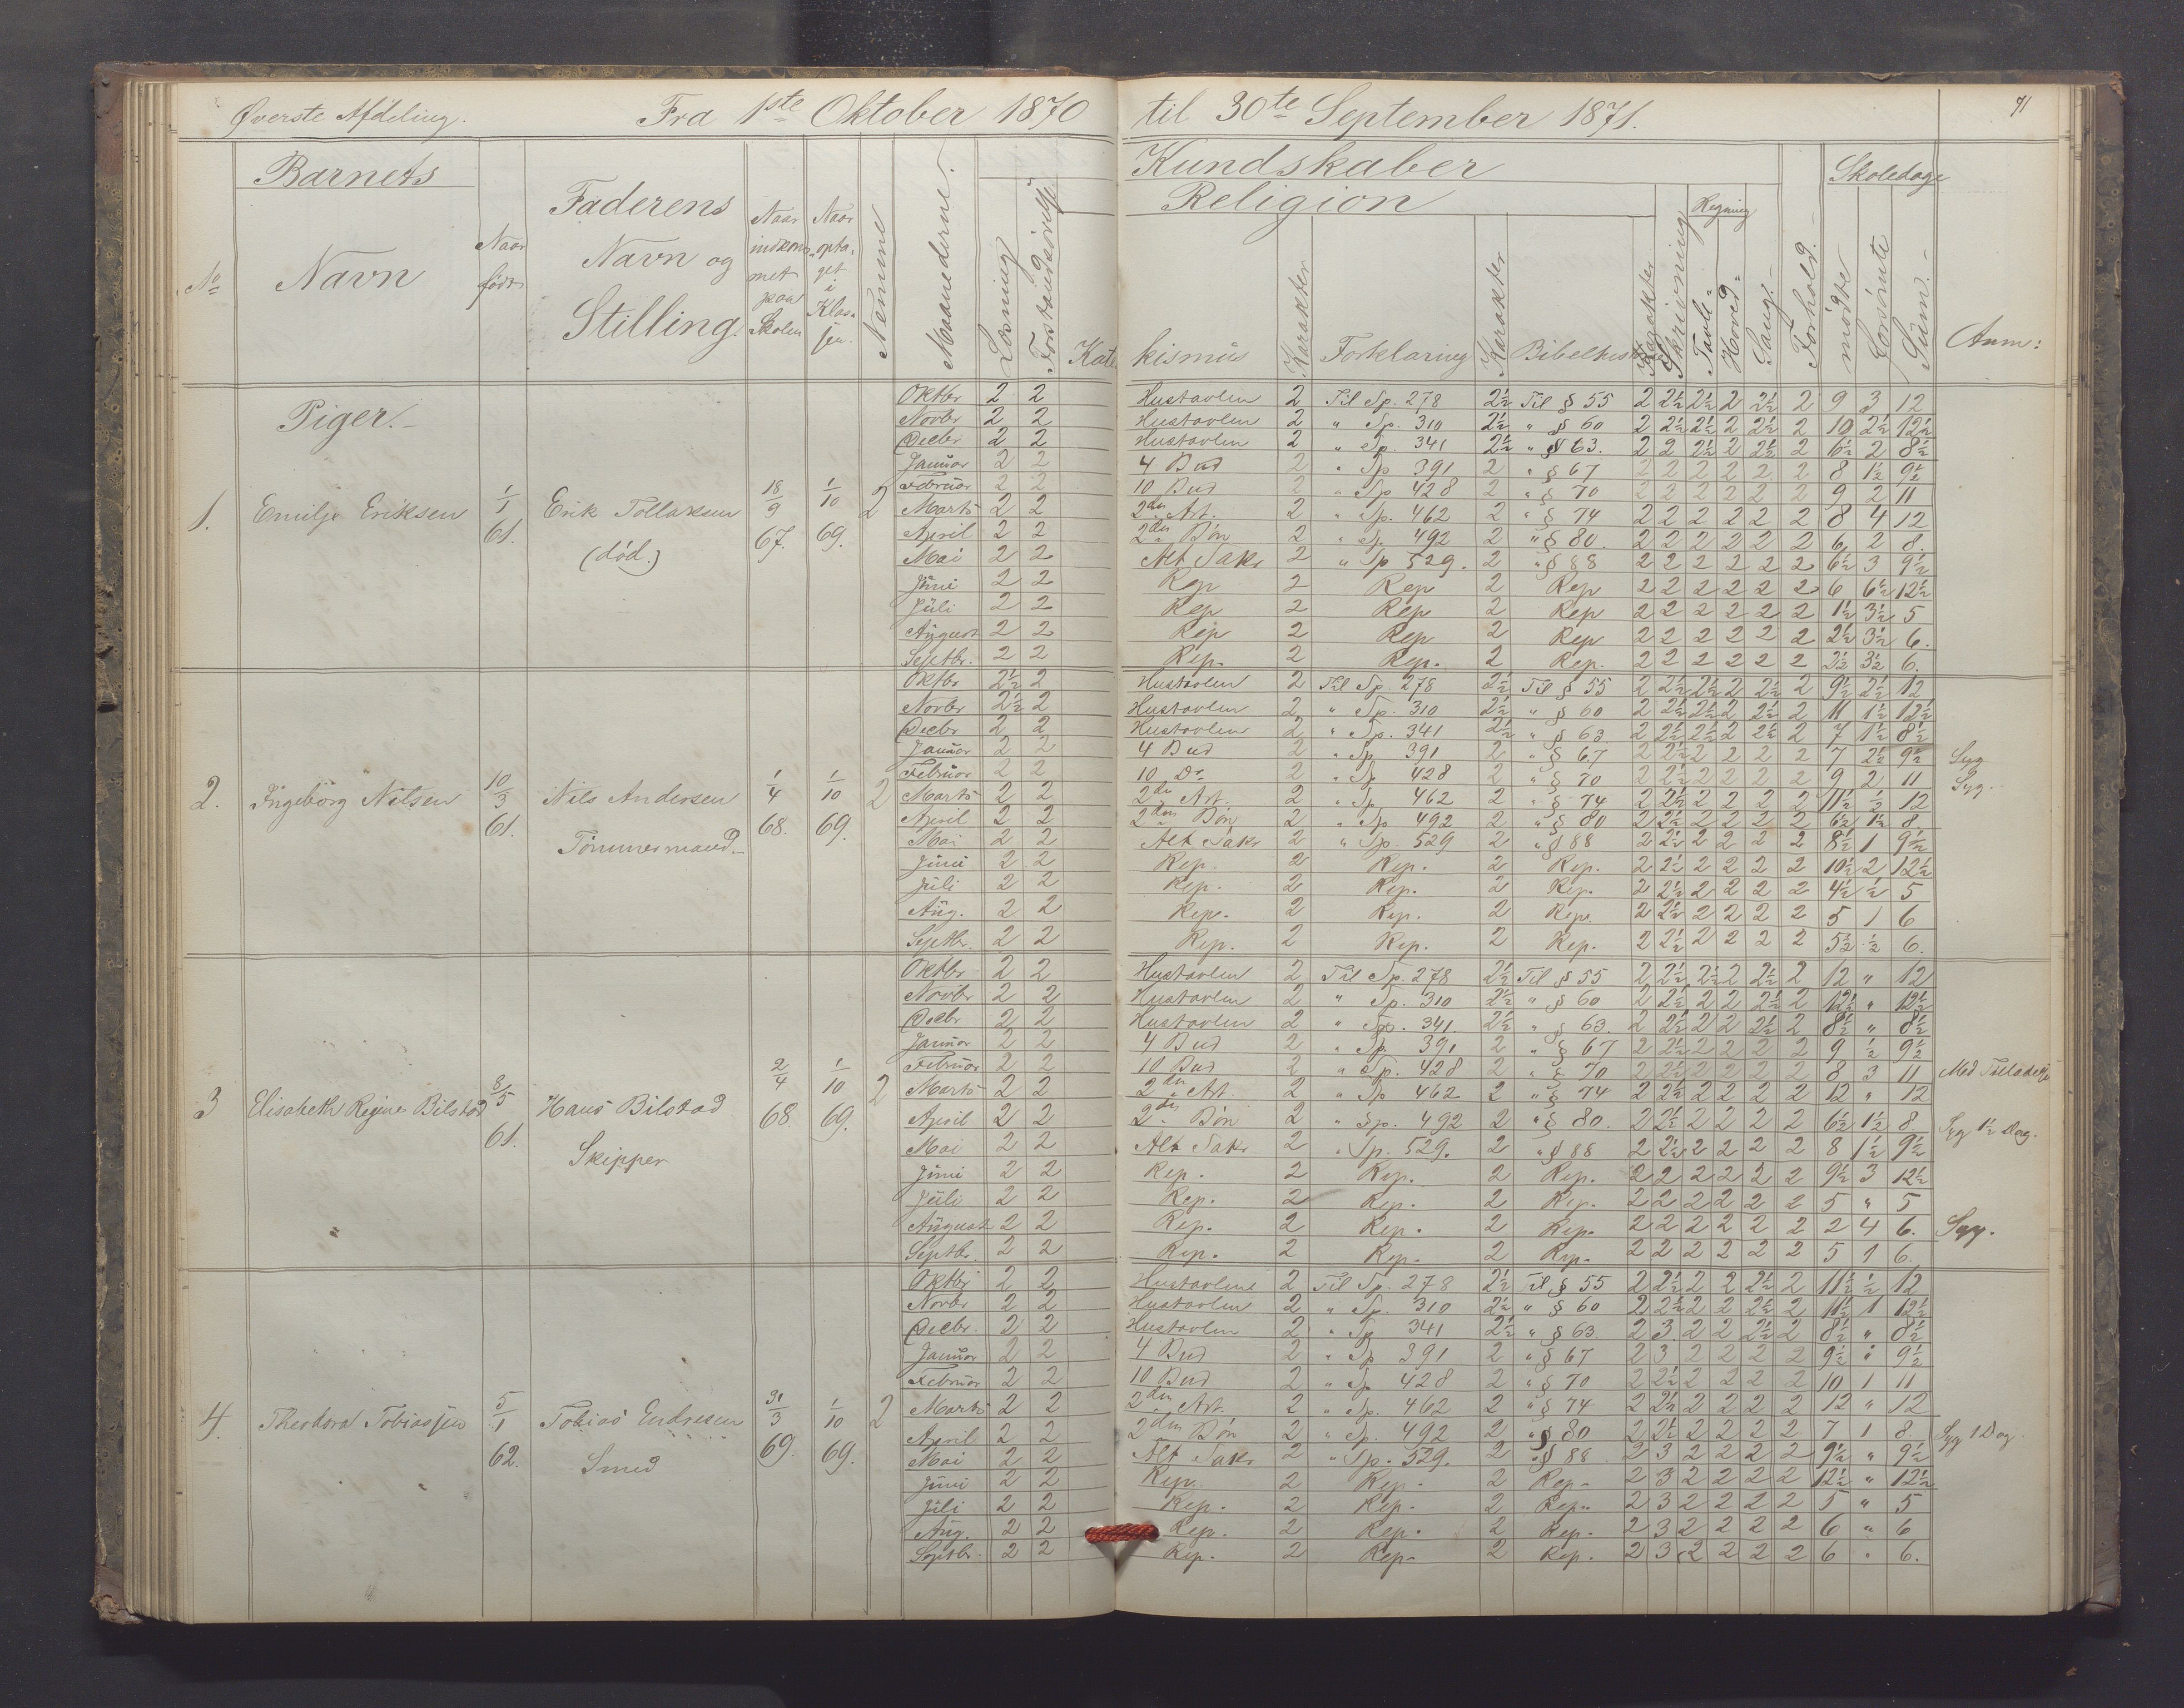 Øverste Afdeling. Fra 1ste Oktober 1870 til 30te September 1871. 71
Barnets Kundskaber Skoledage
No Navn Naar født Faderens Navn og Stilling. Naar indkommet paa Skolen Naar optaget i Klassen. Nemme Maanederne. Læsning Forstandsøvelse
Religion Regning
Katekismus Karakter Forklaring Karakter Bibelhist. Karakter Skrivning Tavle= Hoved= Sang.- Forhold.- mødte forsømte Sum.- Anm:
Piger.-
1. Emilje Eriksen 1/1 61. Erik Tollaksen (død.) 18/9 67. 1/10 69. 2
Oktbr 2 2 Hustavlen 2 Til Sp. 278 2½ Til § 55 2 2½ 2½ 2 2½ 2 9 3 12
Novbr 2 2 Hustavlen 2 " Sp. 310 2½ " § 60 2 2½ 2½ 2 2½ 2 10 2½ 12½
Decbr 2 2 Hustavlen 2 " Sp. 341 2½ " § 63. 2 2 2½ 2 2½ 2 6½ 2 8½
Januar 2 2 4 Bud 2 " Sp 391 2 " § 67 2 2 2 2 2 2 8 1½ 9½
Februar 2 2 10 Bud 2 " Sp. 428 2 " § 70 2 2 2 2 2 2 9 2 11
Marts 2 2 2den Art. 2 " Sp. 462 2 " § 74 2 2 2 2 2 2 8 4 12
April 2 2 2den Bøn 2 " Sp. 492 2 " § 80. 2 2 2 2 2 2 6 2 8.
Mai 2 2 Alt Sakr 2 " Sp 529. 2 " § 88 2 2 2 2 2 2 6½ 3 9½
Juni 2 2 Rep 2 Rep 2 Rep 2 2 2 2 2 2 6 6½ 12½
Juli 2 2 Rep 2 Rep 2 Rep 2 2 2 2 2 2 1½ 3½ 5
August 2 2 Rep 2 Rep 2 Rep 2 2 2 2 2 2 2½ 3½ 6.
Septbr. 2 2 Rep. 2 Rep. 2 Rep. 2 2 2 2 2 2 2½ 3½ 6.
2. Ingeborg Nilsen 10/3 61. Nils Andersen Tømmermand.- 1/4 68. 1/10 69. 2
Oktbr 2½ 2 Hustavlen 2 Til Sp. 278 2½ Til § 55 2 2½ 2½ 2 2½ 2 9½ 2½ 12
Novbr 2½ 2 Hustavlen 2 " Sp. 310 2½ " § 60 2 2½ 2½ 2 2½ 2 11 1½ 12½
Decbr 2 2 Hustavlen 2 " Sp. 341 2½ " § 63 2 2½ 2½ 2 2½ 2 7 1½ 8½
Januar 2 2 4 Bud 2 " Sp 391 2 " § 67 2 2½ 2 2 2 2 7 2½ 9½ Syg
Februar 2 2 10 Do 2 " Sp 428 2 " § 70 2 2½ 2 2 2 2 9 2 11 Syg.
Marts 2 2 2den Art. 2 " Sp 462 2 " § 74 2 2½ 2 2 2 2 11½ ½ 12
April 2 2 2den Bøn 2 " Sp 492 2 " § 80 2 2½ 2 2 2 2 6½ 1½ 8
Mai 2 2 Alt Sakr 2 " Sp. 529 2 " § 88 2 2½ 2 2 2 2 8½ 1 9½
Juni 2 2 Rep. 2 Rep. 2 Rep. 2 2½ 2 2 2 2 10½ 2 12½
Juli 2 2 Rep. 2 Rep. 2 Rep. 2 2½ 2 2 2 2 4½ ½ 5
Aug. 2 2 Rep. 2 Rep. 2 Rep. 2 2½ 2 2 2 2 5 1 6
Septbr. 2 2 Rep. 2 Rep. 2 Rep. 2 2½ 2 2 2 2 5½ ½ 6.
3 Elisabeth Regine Bilstad 8/5 61. Hans Bilstad Skipper 2/4 68. 1/10 69. 2
Oktbr 2 2 Hustavlen 2 Til Sp. 278 2½ Til § 55 2 2½ 2½ 2 2½ 2 12 " 12
Novbr 2 2 Hustavlen 2 " Sp. 310 2½ " § 60 2 2½ 2 2 2½ 2 12½ " 12½
Decbr 2 2 Hustavlen 2 " Sp. 341. 2½ " § 63. 2 2½ 2 2 2½ 2 8½ " 8½
Januar 2 2 4 Bud 2 " Sp. 391 2 " § 67 2 2½ 2 2 2 2 9 ½ 9½
Februar 2 2 10 Bud 2 " Sp. 428 2 " § 70 2 2½ 2 2 2 2 8 3 11 Med Tilladelse
Marts 2 2 2den Art. 2 " Sp 462 2 " § 74 2 2½ 2 2 2 2 12 " 12
April 2 2 2den Bøn 2 " Sp. 492 2 " § 80. 2 2½ 2 2 2 2 6½ 1½ 8. Syg 1½ Dag.
Mai 2 2 Alt Sakr 2 " Sp. 529. 2 " § 88 2 2½ 2 2 2 2 8 1½ 9½
Juni 2 2 Rep. 2 Rep. 2 Rep. 2 2 2 2 2 2 9½ 3 12½
Juli 2 2 Rep. 2 Rep. 2 Rep. 2 2 2 2 2 2 5 " 5
August 2 2 Rep. 2 Rep. 2 Rep. 2 2 2 2 2 2 2 4 6. Syg.
Septbr. 2 2 Rep. 2 Rep. 2 Rep. 2 2 2 2 2 2 5 1 6
4. Theodora Tobiassen 5/1 62. Tobias Endresen Smed 31/3 69. 1/10 69. 2
Oktbr 2 2 Hustavlene 2 Til Sp. 278 2½ Til § 55 2 2½ 2 2 2½ 2 11½ ½ 12
Novbr 2 2 Hustavlen 2 " Sp. 310 2½ " § 60 2 2½ 2 2 2½ 2 11½ 1 12½
Decbr. 2 2 Hustavlen 2 " Sp 341 2½ " § 63. 2 3. 2 2 2½ 2 8½ " 8½
Januar 2 2 4 Bud 2 " Sp 391 2 " § 67 2 3 2 2 2 2 9½ " 9½
Februar 2 2 10 Bud 2 " Sp 428 2 " § 70 2 2½ 2 2 2 2 10 1 11
Marts 2 2 2den Art. 2 " Sp. 462 2 " § 74 2 2½ 2 2 2 2 12 " 12
April 2 2 2den Bøn 2 " Sp. 492 2 " § 80 2 2½ 2 2 2 2 7 1 8. Syg 1 Dag.
Mai 2 2 Alt Sakr 2 " Sp. 529. 2 " § 88 2 3 2 2 2 2 9½ " 9½
Juni 2 2 Rep. 2 Rep. 2 Rep. 2 3 2 2 2 2 12½ " 12½
Juli 2 2 Rep. 2 Rep. 2 Rep. 2 3 2 2 2 2 5 " 5
Aug. 2 2 Rep. 2 Rep. 2 Rep. 2 3 2 2 2 2 6 " 6
Septbr. 2 2 Rep. 2 Rep. 2 Rep. 2 3 2 2 2 2 6 " 6.